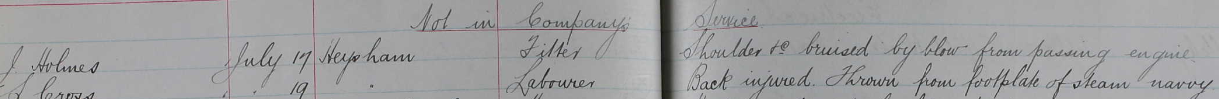 Not in Company's Service
J Holmes July 17 Heysham Fitter Shoulder &c bruised by blow from passing engine.
" 19 " Labourer Back injured. Thrown from footplate of steam navvy